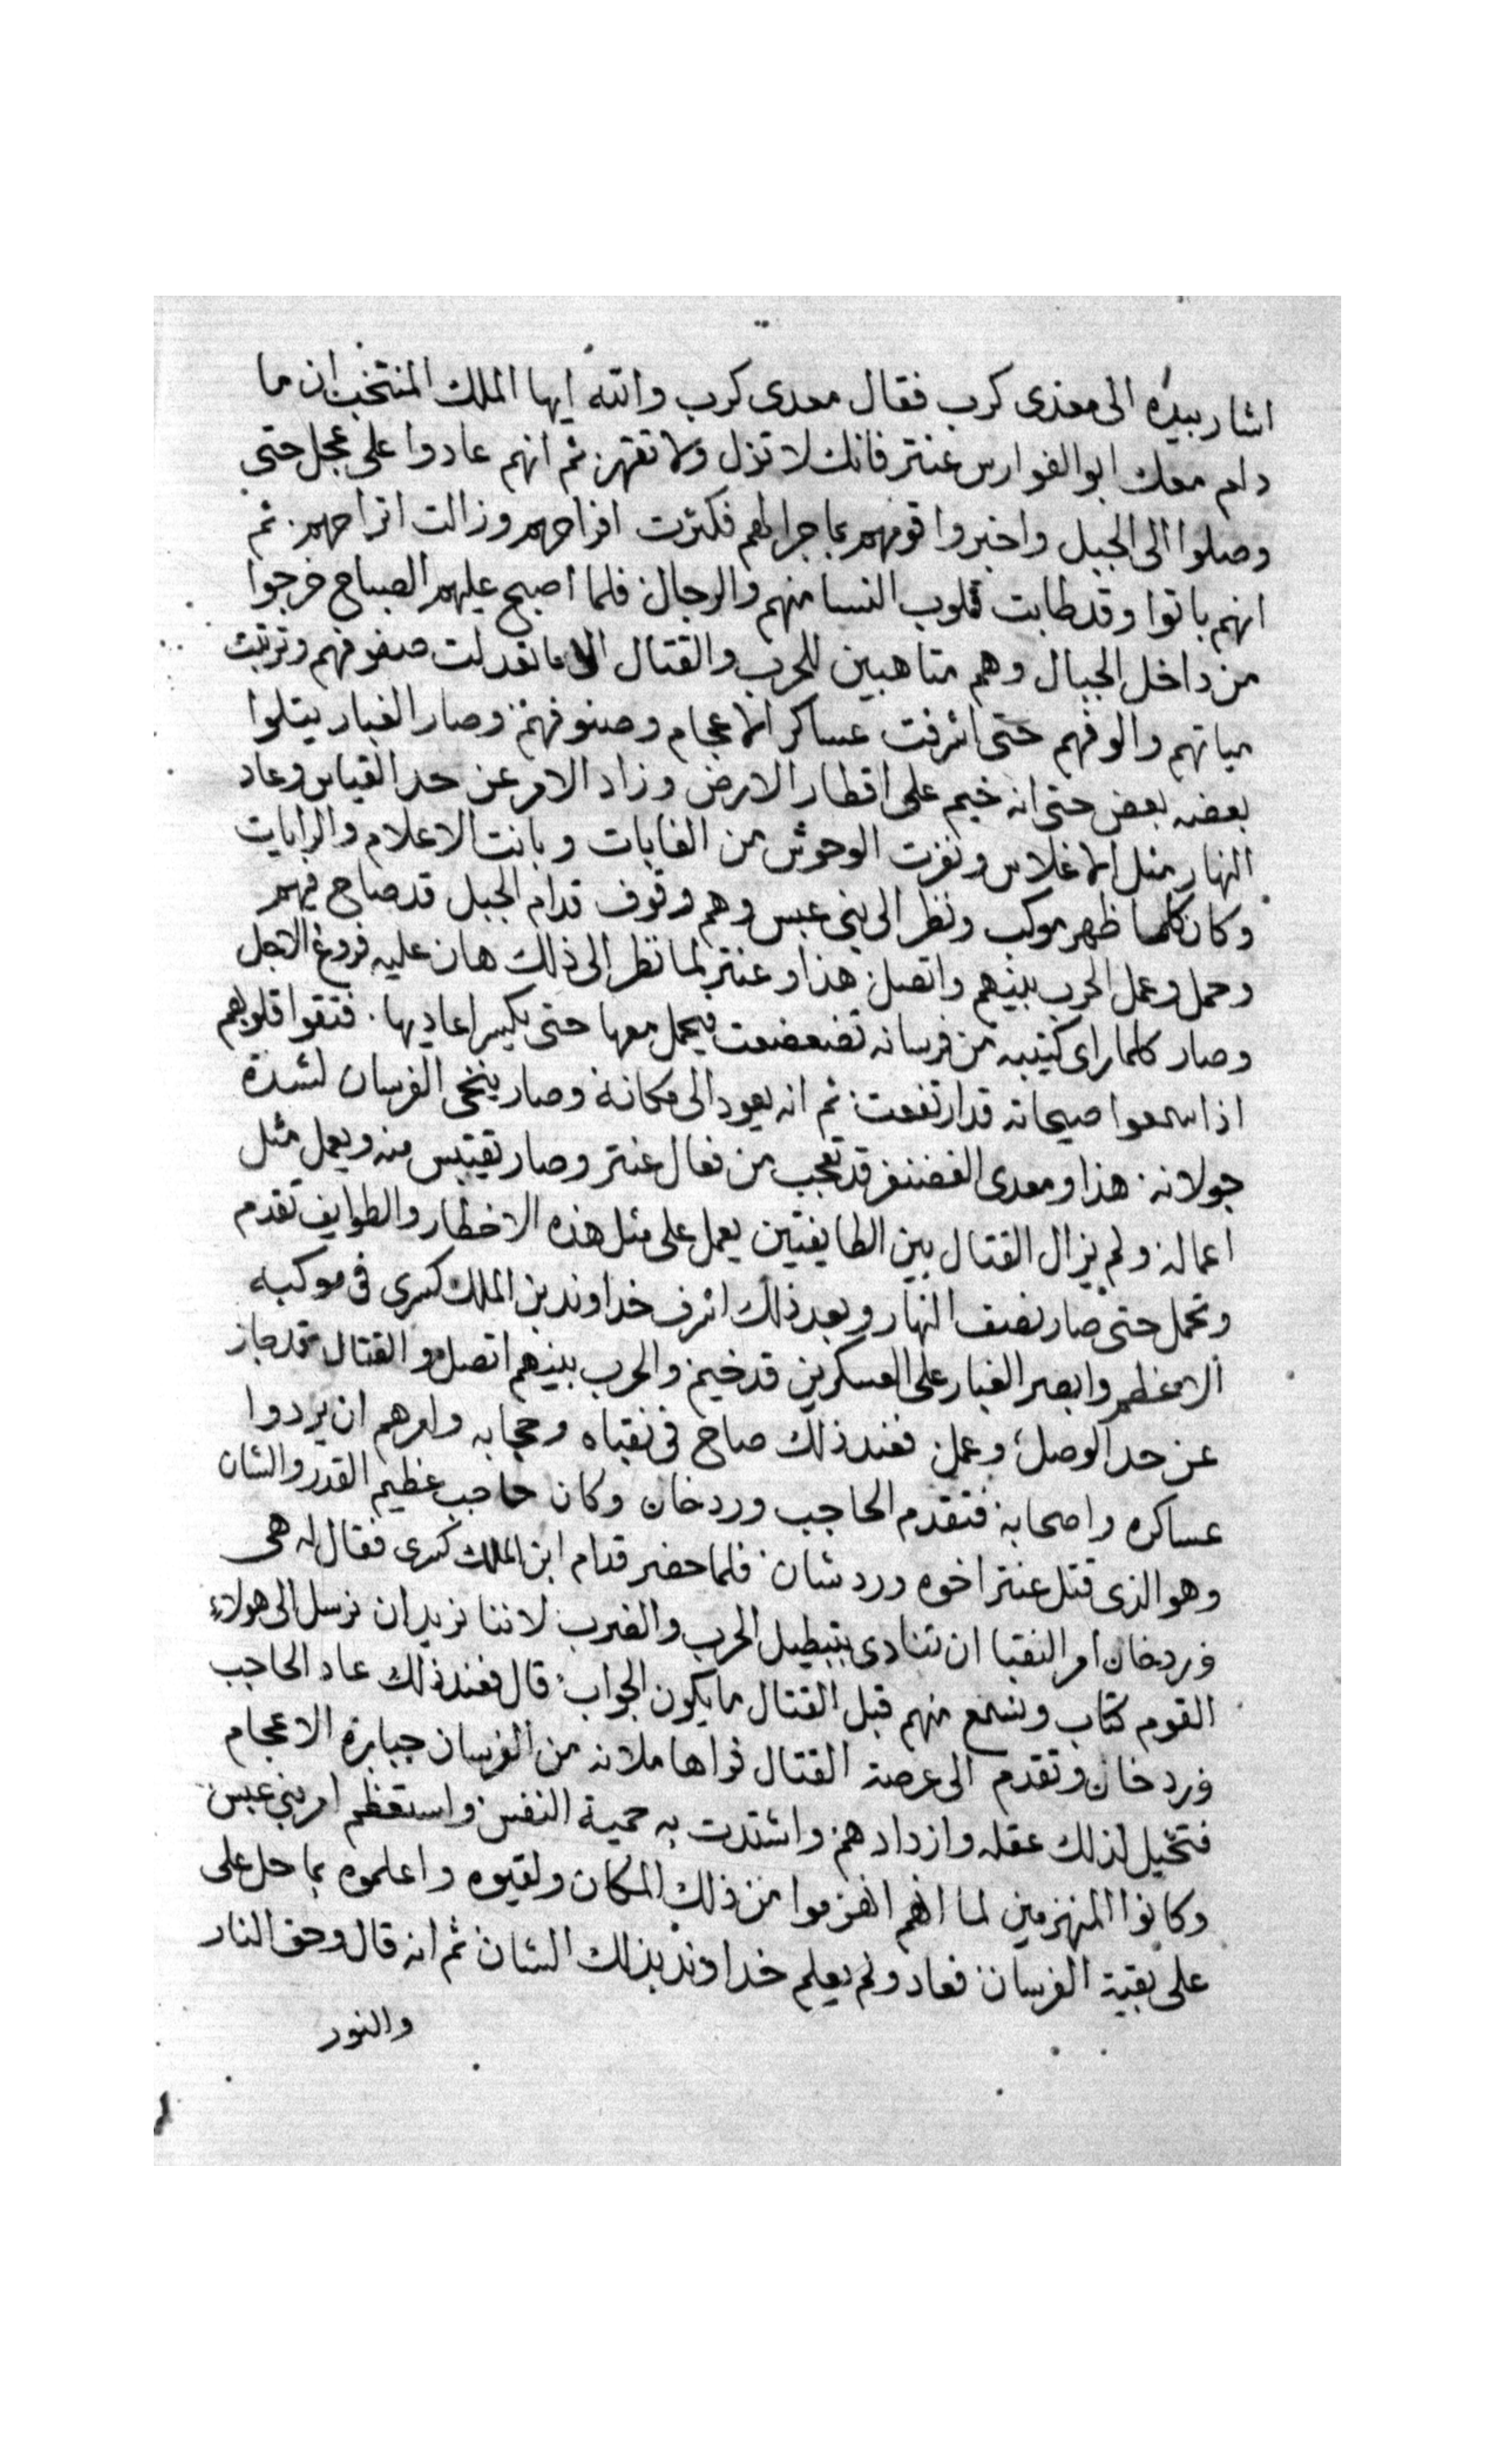 اشار بيده الى معدى كرب فقال معدى كرب والله ايها الملك المنتخب ان ما
دام معك ابو الفوارس عنتر فانك لا تزل ولا تقهر ثم انهم عادوا على عجل حتى
وصلوا الى الجبل واخبروا قومهم بما جرا لهم فكثرت افراحهم وزالت اتراحهم. ثم
انهم باتوا وقد طابت قلوب النسا منهم والرجال فلما اصبح عليهم الصباح خرجوا
من داخل الجبال وهم متاهبين للحرب والقتال الا ما نعدلت صفوفهم وترتبت
مياتهم والوفهم حتى اشرفت عساكر الاعجام وصنوفهم وصار الغبار يتلوا
بعضه بعض حتى انه خيم على اقطار الارض وزاد الامر عن حد القياس وعاد
النهار مثل الاغلاس ونفرت الوحوش من الغابات وبانت الاعلام والرايات
وكان كلما ظهر موكب ونظر الى بنى عبس وهم وقوف قدام الجبل قد صاح فيهم
وحمل وعمل الحرب بينهم واتصل هذا وعنتر لما نظر الى ذلك هان عليه فروغ الاجل
وصار كلما راى كتيبه من فرسانه تضعضعت فيحمل معها حتى يكسر اعاديها. فتقوا قلوبهم
اذا سمعوا صيحاته قد ارتفعت ثم انه يعود الى مكانه وصار ينخى الفرسان لشدة
جولانه هذا ومعدى الغضنفر قد تعجب من فعال عنتر وصار تقيتبس منه ويعمل مثل
اعماله ولم يزال القتال بين الطايفتين يعمل على مثل هذه الاخطار والطوايف تقدم
وتحمل حتى صار نصف النهار وبعد ذلك اشرف خداوند بن الملك كسرى فى موكبه
الاعظم وابصر الغبار على العسكرين قد خيم والحرب بينهم اتصل والقتال قد جاز
عن حد الوصل وعمل فعند ذلك صاح فى نقباه وحجابه وامرهم ان يردوا
عساكره واصحابه فتقدم الحاجب وردخان وكان حاجب عظيم القدر والشان
وهو الذى قتل عنتر اخوه وردشان فلما حضر قدام ابن الملك كسرى فقال له هى
وردخان امر النقبا ان تنادى بتبطيل الحرب والضرب لاننا نريد ان نرسل الى هولاء
القوم كتاب ونسمع منهم قبل القتال ما يكون الجواب قال فعند ذلك عاد الحاجب
وردخان وتقدم الى عرصة القتال فراها ملانه من الفرسان جبابرة الاعجام
فتخيل لذلك عقله وازداد همز واشتدت به حمية النفس واستعظم امر بنى عبس
وكانوا المنهزمين لما انهم انهزموا من ذلك المكان ولقيوه واعلموه بما حل على
على بقية الفرسان فعاد ولم يعلم خداوند بذلك الشان ثم انه قال وحق النار
والنور